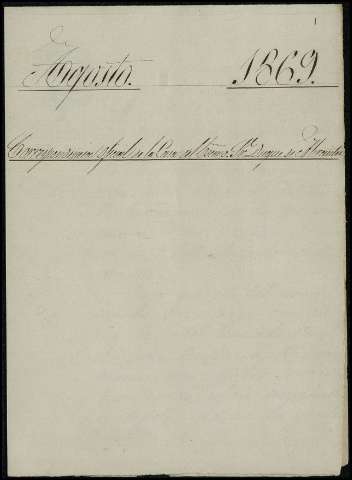 1
Agosto. 1869.
Correspondencia oficial de la Casa del Excmo. Sr. Duque de Abrantes